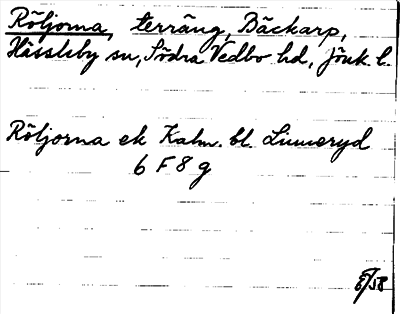 Röljorna, terräng, Bäckarp,
Hässleby sn, Södra Vedbo hd, Jönk. l.
Röljorna ek Kalm. bl. Linneryd
6 F 8 g
5/58